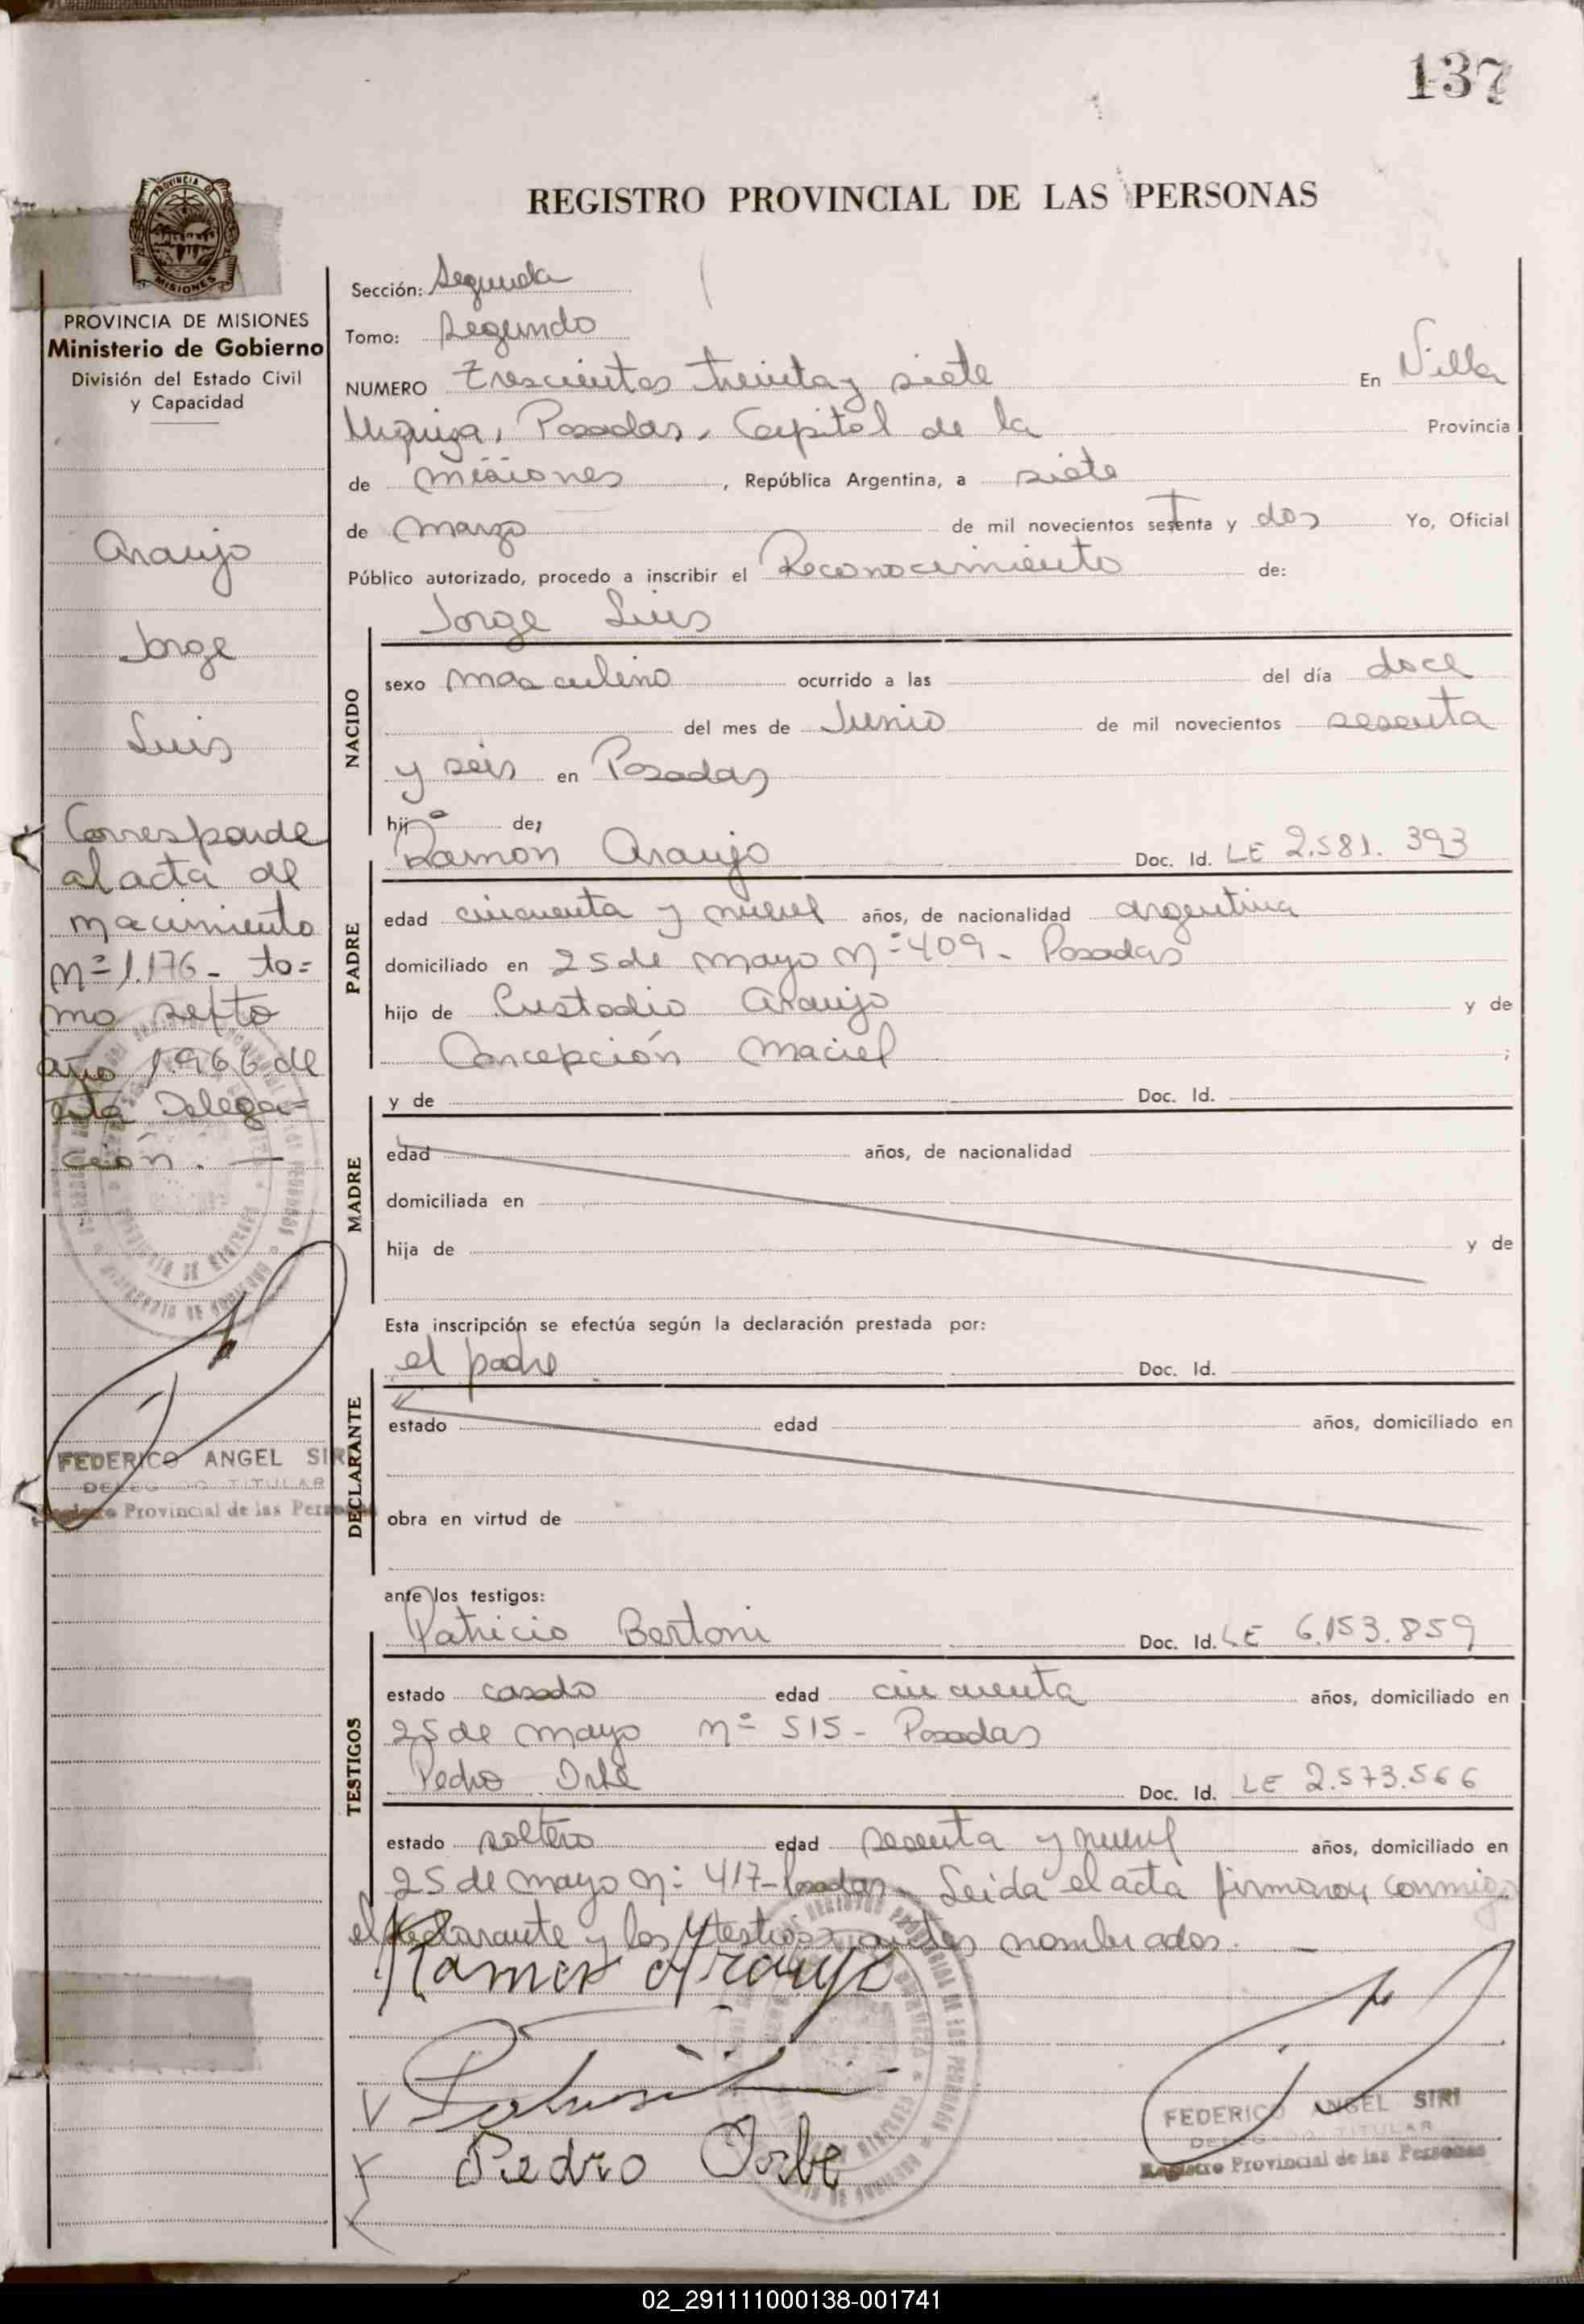 137
REGISTRO PROVINCIAL DE LAS PERSONAS
PROVINCIA DE MISIONES
Ministerio de Gobierno
División del Estado Civil
y Capacidad
Araujo
Jorge
Luis
Corresponde
al acta de
nacimiento
Nº 1.176 - to=
mo septo
año 1.966 de
esta Delega=
ción. —
FEDERICO ANGEL SIRI
DELEGADO TITULAR
Registro Provincial de las Personas
Sección: Segunda
Tomo: Segundo
NUMERO Trescientos treinta y siete En Villa
Urquiza, Posadas, Capital de la Provincia
de Misiones, República Argentina, a siete
de Marzo de mil novecientos setenta y dos Yo, Oficial
Público autorizado, procedo a inscribir el Reconocimiento de:
Jorge Luis
NACIDO
sexo masculino ocurrido a las del día doce
del mes de Junio de mil novecientos sesenta
y seis en Posadas
hijo de;
PADRE
Ramon Araujo Doc. Id. LE 2.581.393
edad cincuenta y nueve años, de nacionalidad argentina
domiciliado en 25 de mayo Nº 409 - Posadas
hijo de Custodio Araujo y de
Concepción Maciel ;
MADRE
y de Doc. Id.
edad años, de nacionalidad
domiciliada en
hija de y de
Esta inscripción se efectúa según la declaración prestada por:
DECLARANTE
el padre Doc. Id.
estado edad años, domiciliado en
obra en virtud de
ante los testigos:
TESTIGOS
Patricio Bertoni Doc. Id. LE 6.153.859
estado casado edad cincuenta años, domiciliado en
25 de mayo nº 515 - Posadas
Pedro Orbe Doc. Id. LE 2.573.566
estado soltero edad sesenta y nueve años, domiciliado en
25 de mayo Nº 417 - Posadas. Leida el acta firmaron conmigo
el declarante y los testigos antes nombrados. —
Ramon Araujo
Pedro Orbe
FEDERICO ANGEL SIRI
DELEGADO TITULAR
Registro Provincial de las Personas
02_291111000138-001741